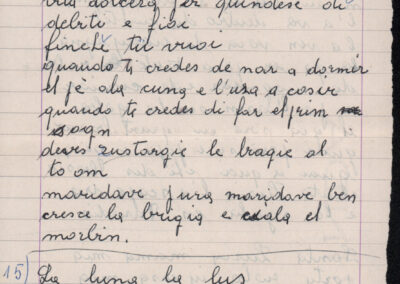 per quindese di
debiti e fioi
finchè tu vuoi
quando ti credes de nar a dormir
el pè ala cuna e l'usa a cosir
quando ti credes di far el prim
sogn
deves zustargie le bragie al
to om
maridave pura maridave ben
cresce la brigia e cala el
morbin.
15) La luna la lus